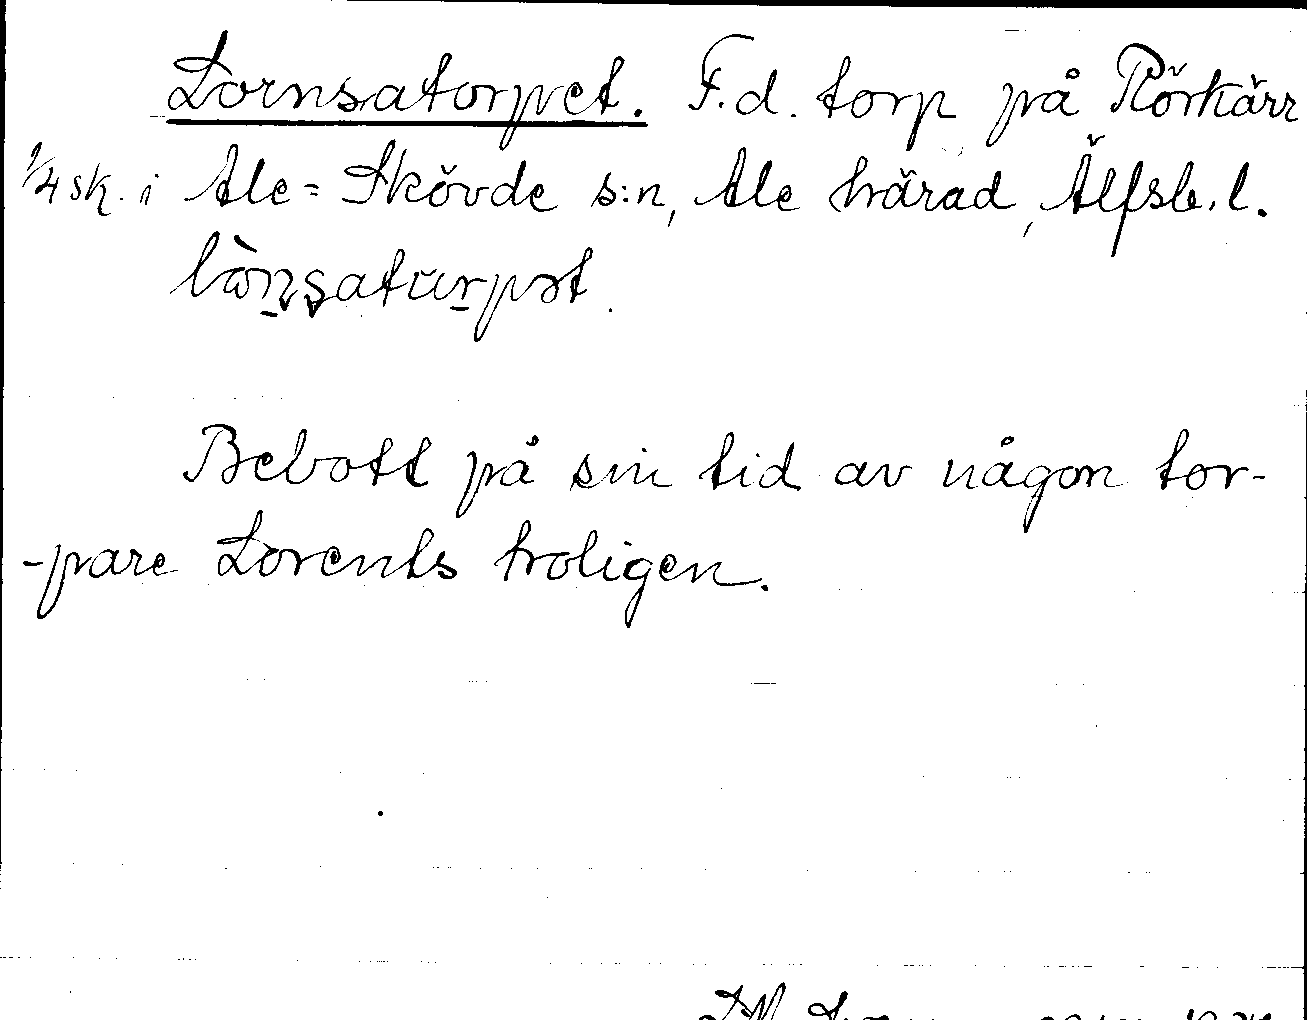 Lornsatorpet. F.d. torp på Rörkärr
1/4 sk. i Ale=Skövde s:n, Ale härad, Älfsb.l.
lònsaturpət.
Bebott på sin tid av någon tor-
-pare Lorents troligen.